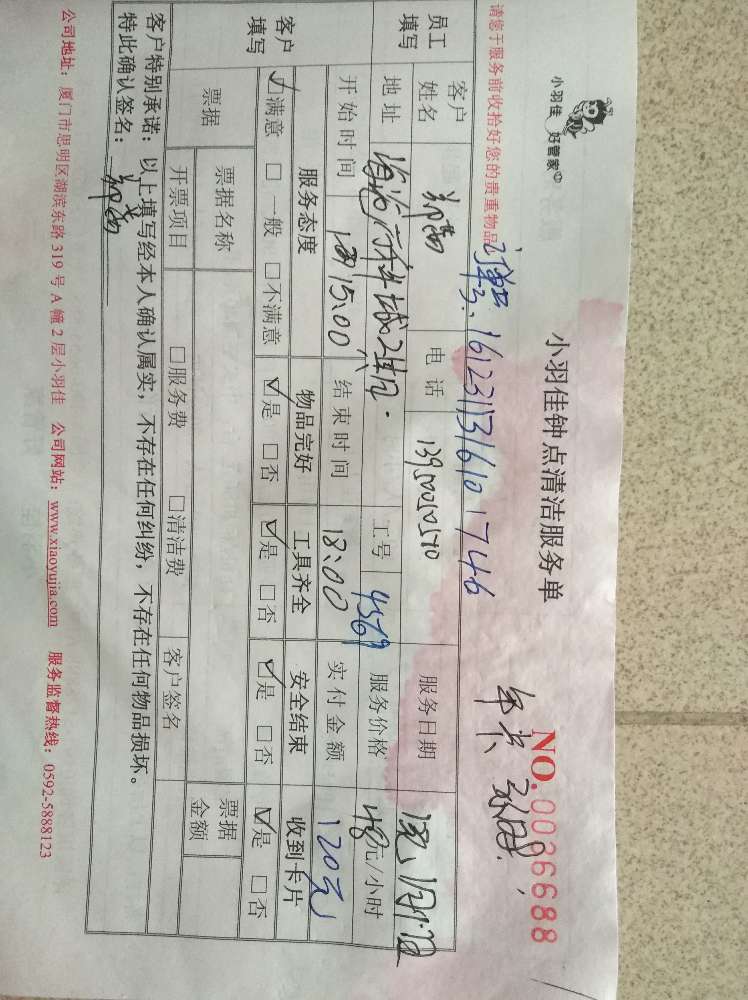 小羽佳 好管家
小羽佳钟点清洁服务单
NO.0036688
请您于服务前收拾好您的贵重物品
1612311316101746
员工填写
客户姓名
电话 13950050510
服务日期
地址
工号 4569
服务价格 48元/小时
客户填写
开始时间 15:00
结束时间 18:00
实付金额 120元
服务态度 物品完好 工具齐全 安全结束 收到卡片
☑满意 □一般 □不满意 ☑是 □否 ☑是 □否 ☑是 □否 ☑是 □否
票据 票据名称 □服务费 □清洁费 客户签名 票据金额
开票项目
客户特别承诺：以上填写经本人确认属实，不存在任何纠纷，不存在任何物品损坏。
特此确认签名：
公司地址：厦门市思明区湖滨东路 319 号 A 幢 2 层小羽佳 公司网站：www.xiaoyujia.com 服务监督热线：0592-5888123